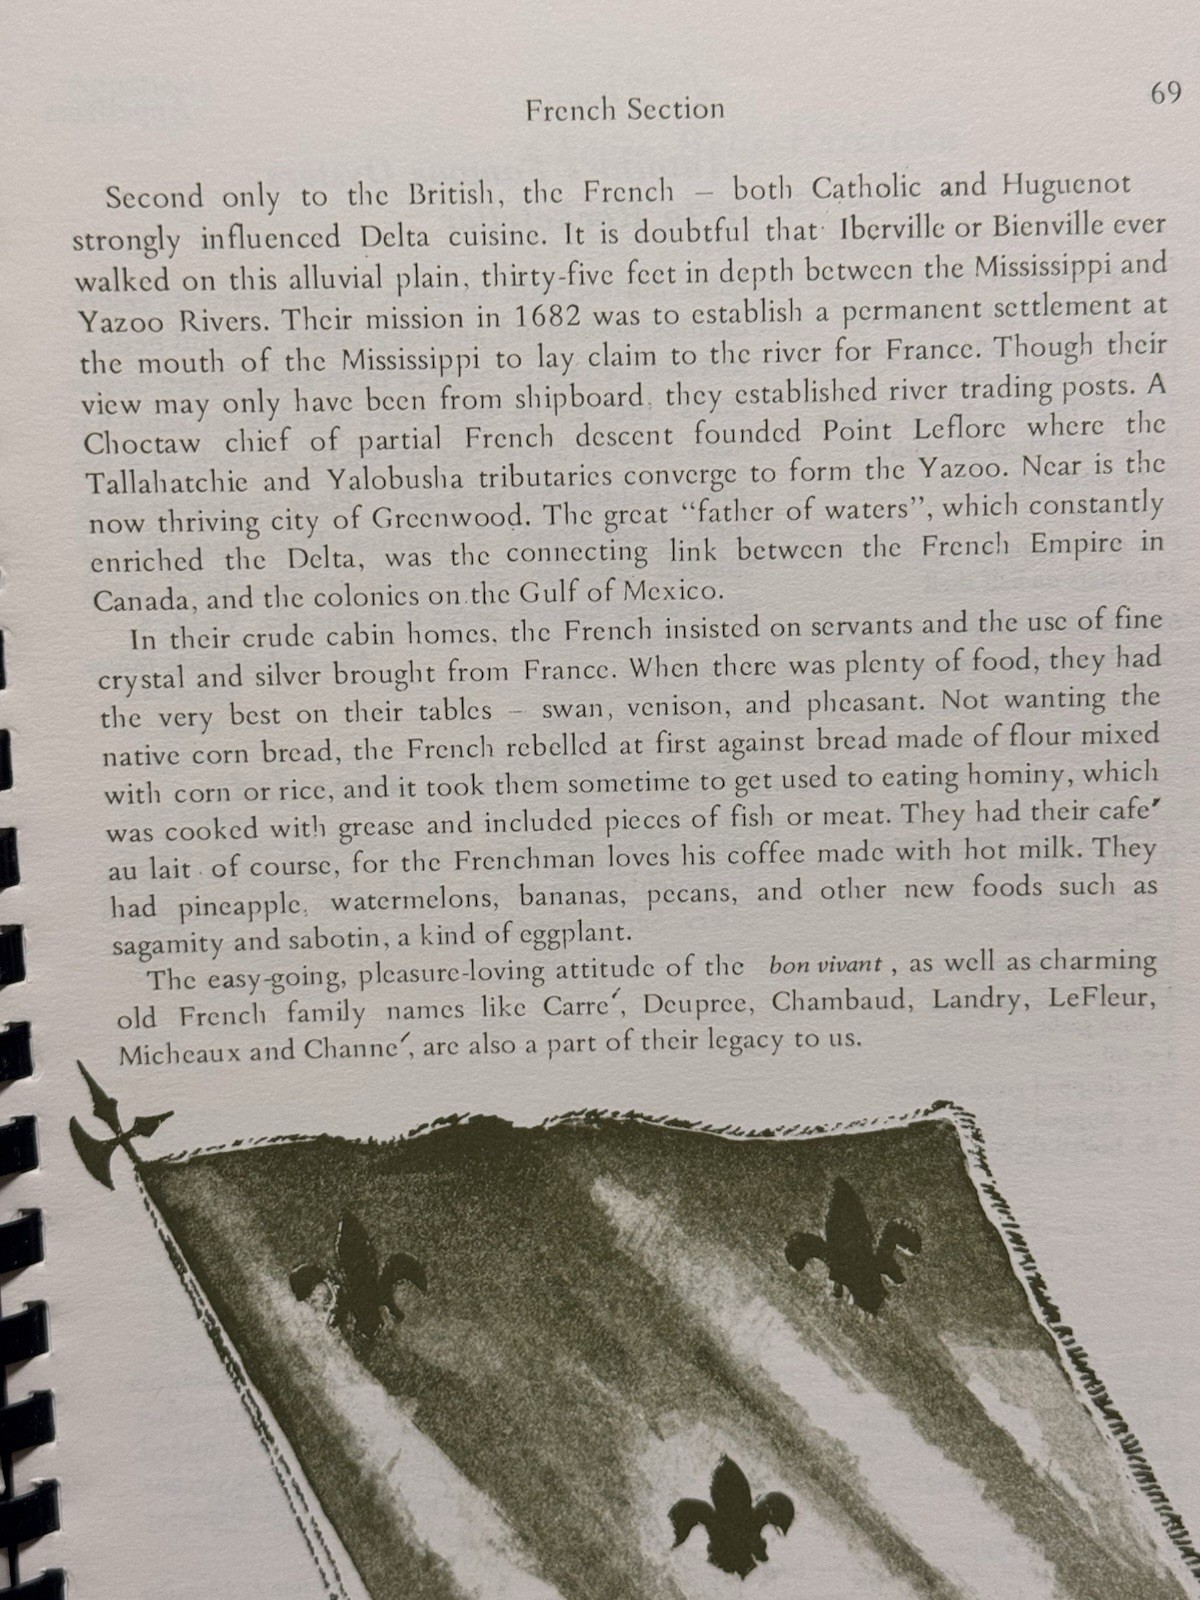 69
French Section
Second only to the British, the French – both Catholic and Huguenot
strongly influenced Delta cuisine. It is doubtful that Iberville or Bienville ever
walked on this alluvial plain, thirty-five feet in depth between the Mississippi and
Yazoo Rivers. Their mission in 1682 was to establish a permanent settlement at
the mouth of the Mississippi to lay claim to the river for France. Though their
view may only have been from shipboard, they established river trading posts. A
Choctaw chief of partial French descent founded Point Leflore where the
Tallahatchie and Yalobusha tributaries converge to form the Yazoo. Near is the
now thriving city of Greenwood. The great “father of waters”, which constantly
enriched the Delta, was the connecting link between the French Empire in
Canada, and the colonies on the Gulf of Mexico.
In their crude cabin homes, the French insisted on servants and the use of fine
crystal and silver brought from France. When there was plenty of food, they had
the very best on their tables – swan, venison, and pheasant. Not wanting the
native corn bread, the French rebelled at first against bread made of flour mixed
with corn or rice, and it took them sometime to get used to eating hominy, which
was cooked with grease and included pieces of fish or meat. They had their cafe′
au lait of course, for the Frenchman loves his coffee made with hot milk. They
had pineapple, watermelons, bananas, pecans, and other new foods such as
sagamity and sabotin, a kind of eggplant.
The easy-going, pleasure-loving attitude of the bon vivant , as well as charming
old French family names like Carre′, Deupree, Chambaud, Landry, LeFleur,
Micheaux and Channe′, are also a part of their legacy to us.